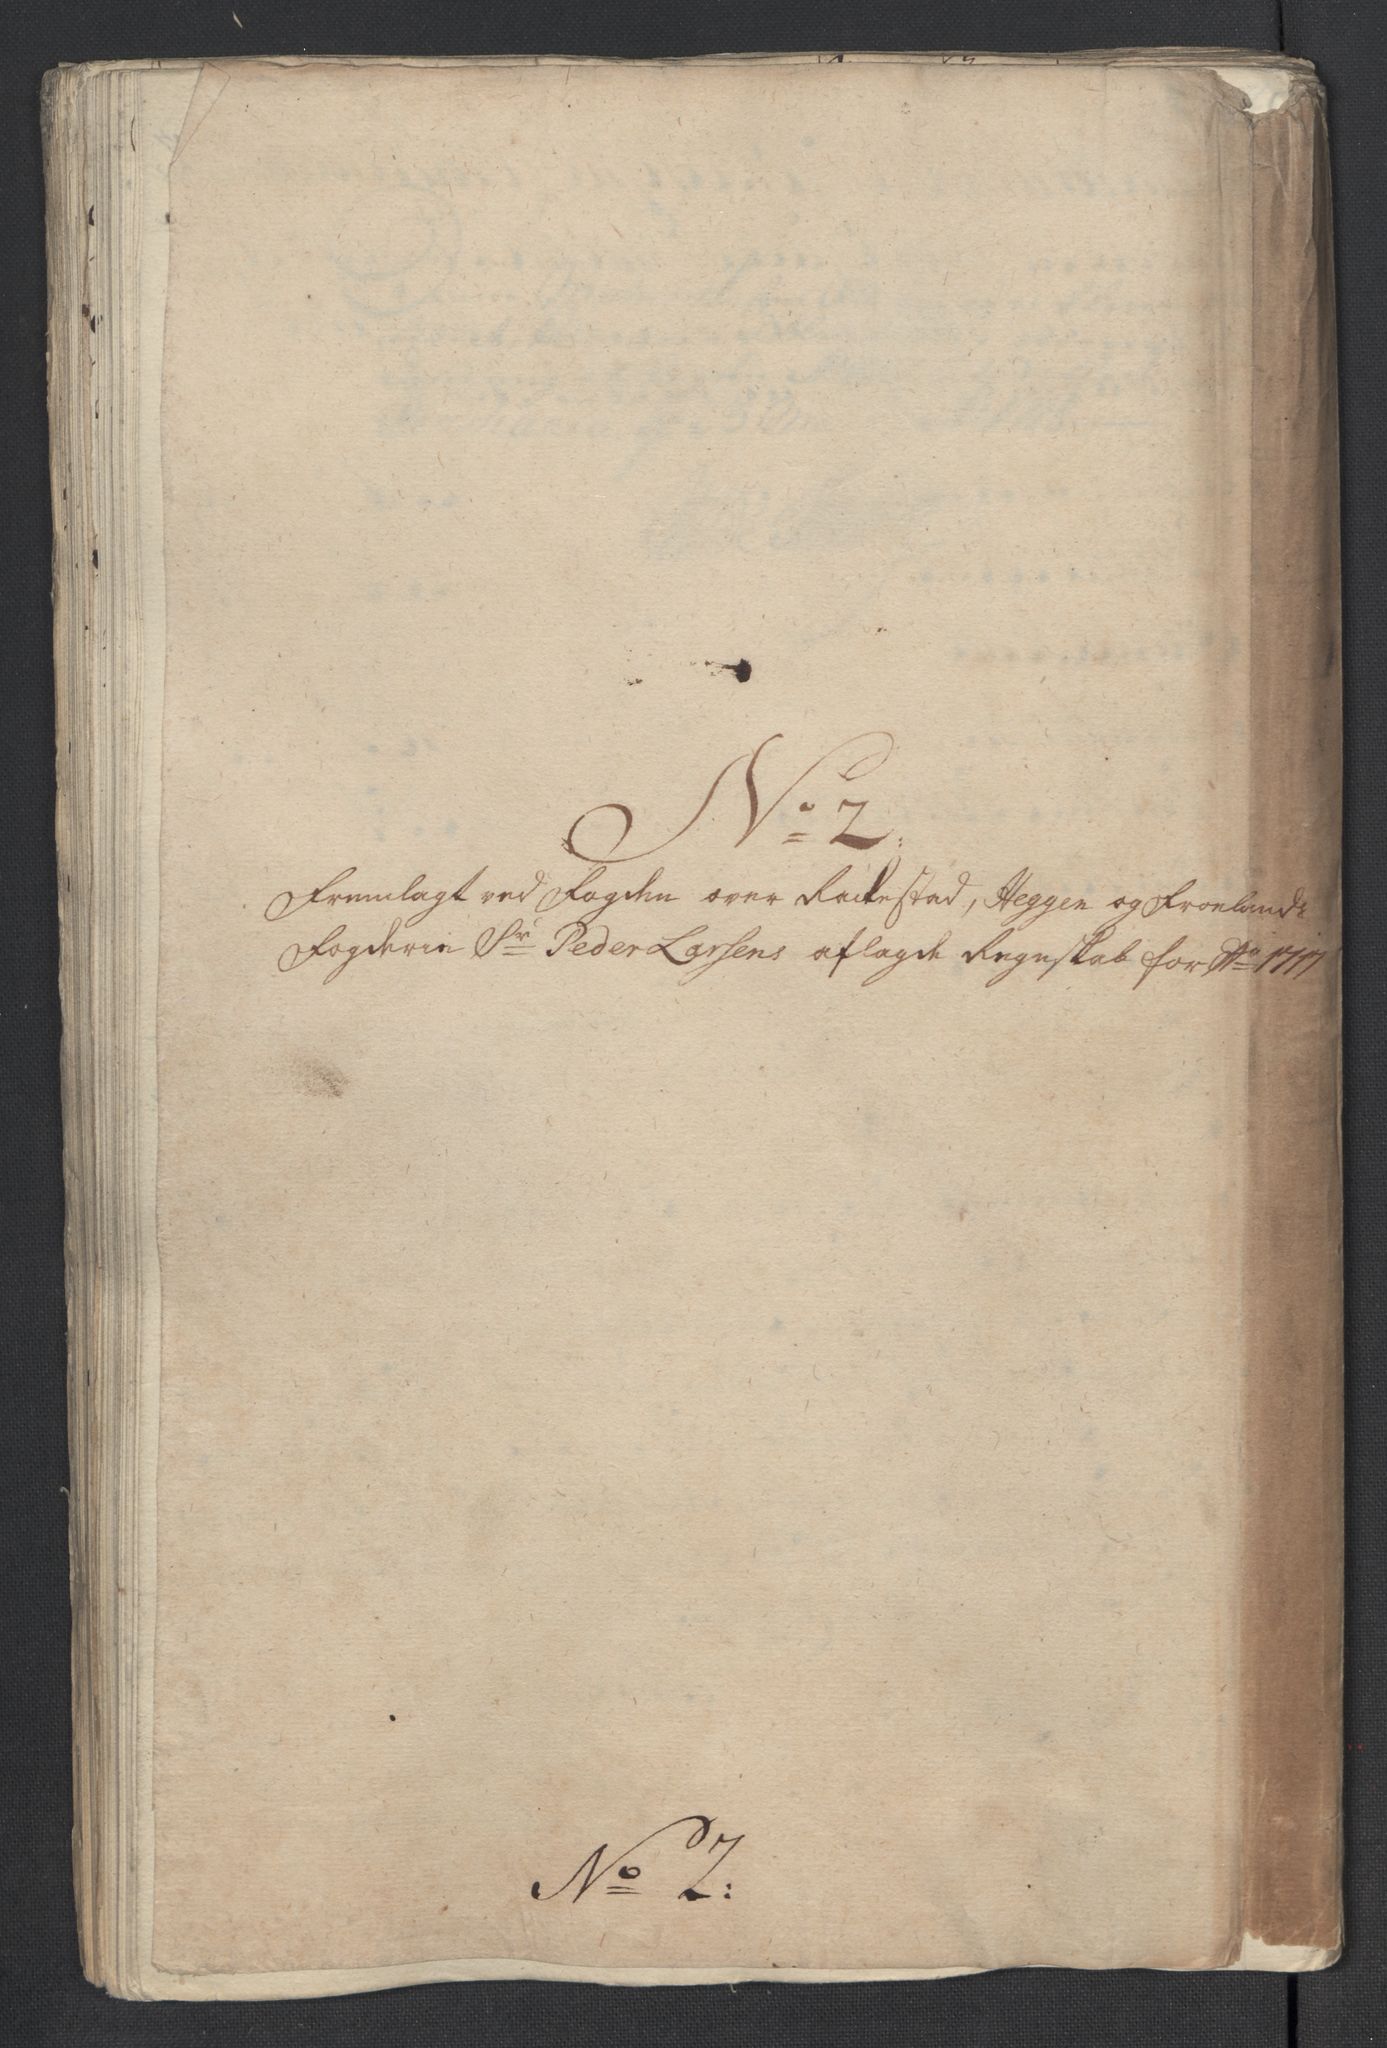 No 2.
Fremlagt ved Fogden over Rackestad, Heggen og Froelands
Fogderie Sr Peder Larsens aflagde Regnskab for Ao 1717
No 2: